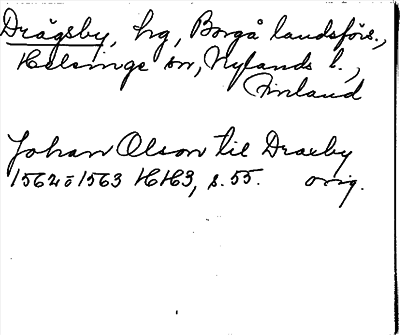 Drägsby, hg, Borgå landsförs.,
Helsinge sn, Nylands l.,
Finland
Johan Olson til Draxby
1562 o 1563 HH3, s. 55. orig.